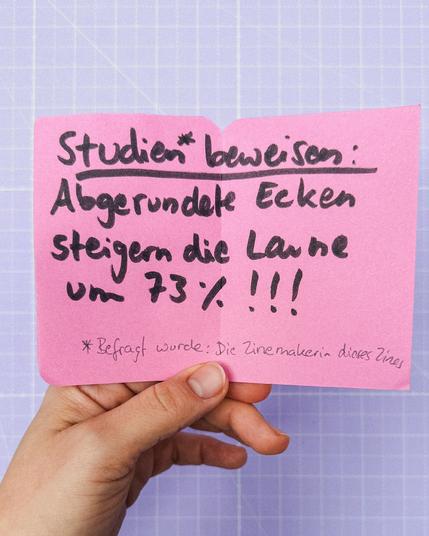 Studien* beweisen:
Abgerundete Ecken
steigern die Laune
um 73% !!!
*Befragt wurde: Die Zinemakerin dieses Zines